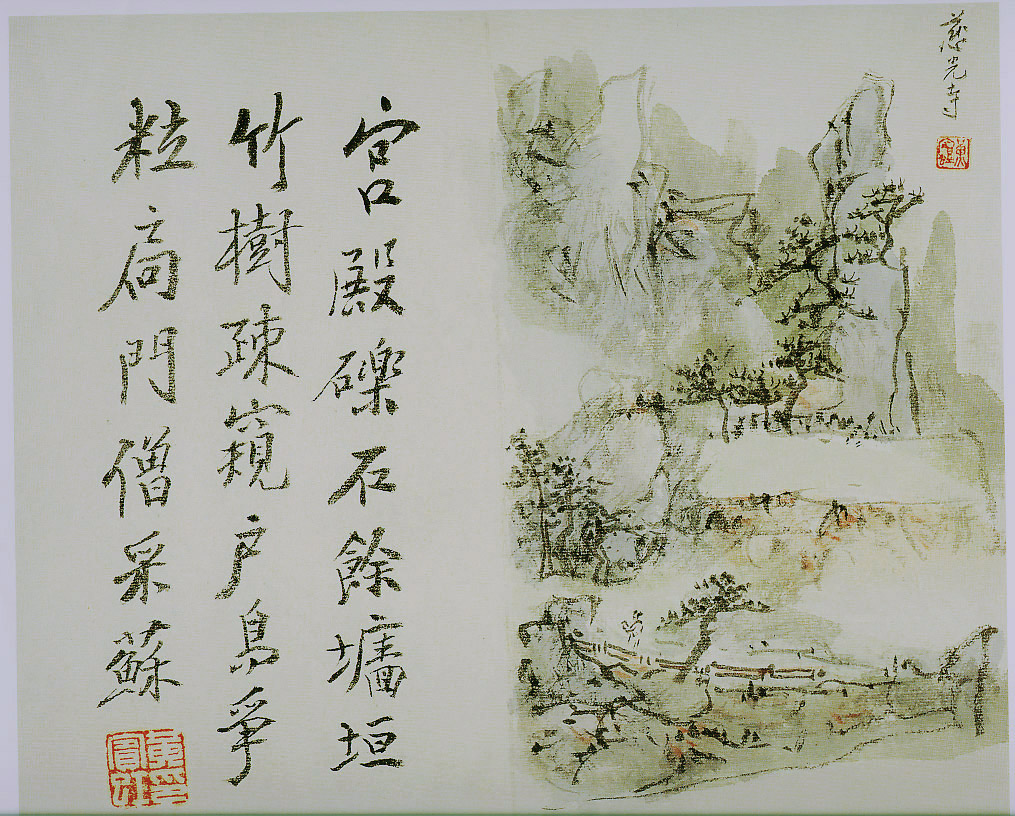 慈光寺
宮殿礫石餘墉垣
竹樹疎窺戶鳥爭
粒扃門僧采蘇